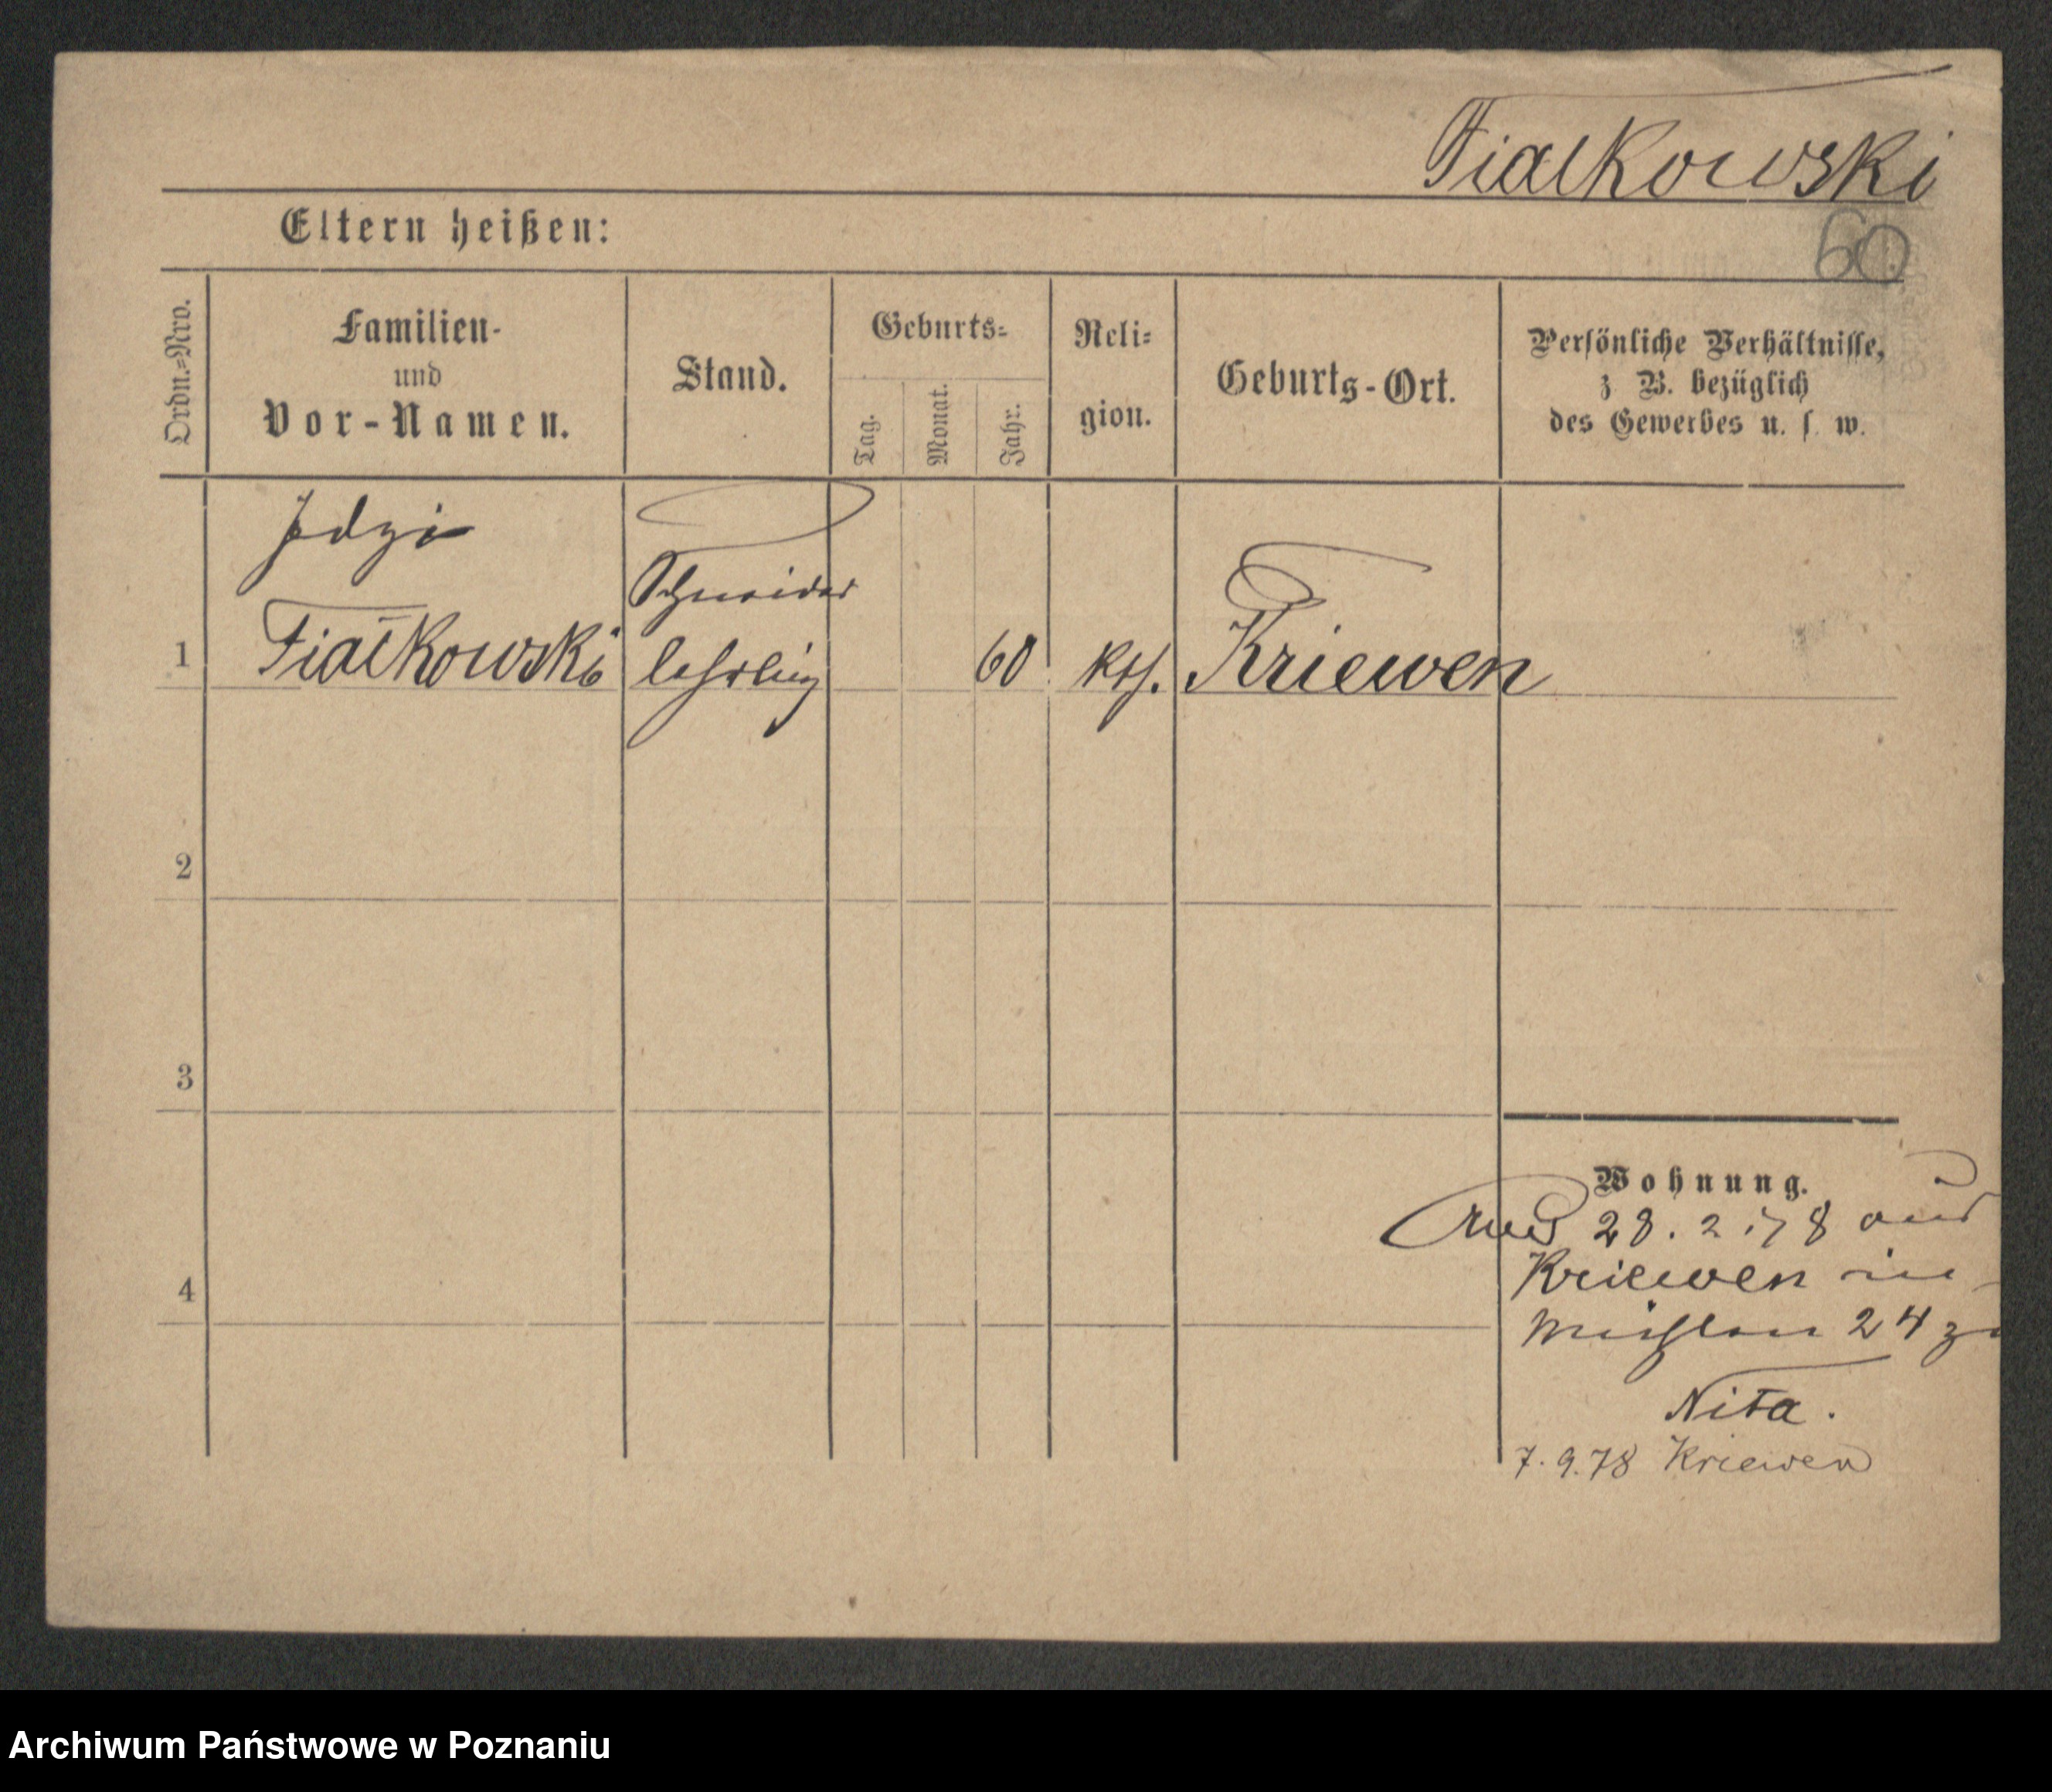 Fialkowski
60
Eltern heißen:
Ordn.=Nro.
Familien-
und
Vor-Namen.
Stand.
Geburts=
Tag.
Monat.
Jahr.
Reli=
gion.
Geburts-Ort.
Persönliche Verhältnisse,
z B. bezüglich
des Gewerbes u. s. w.
Schneider
1 Fialkowski lehrling 60 kth. Kriewen
2
3
4
Wohnung.
28.2.78 aus
Kriewen in
Mühlen 24 zu
Nita.
7.9.78 Kriewen
Archiwum Państwowe w Poznaniu